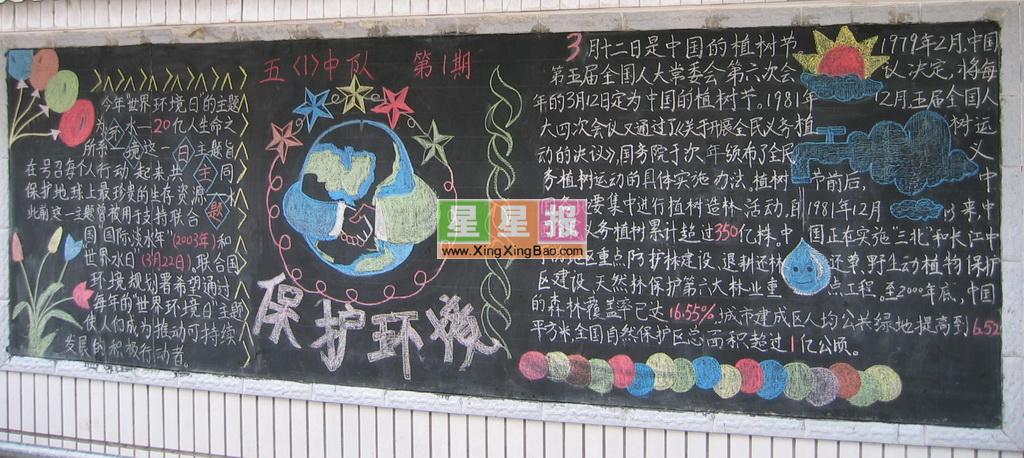 五〈1〉中队 第1期
今年"世界环境日"的主题
为 水—20亿人生命之
所系 竟这一日主题旨
在号召每个人行动起来共主同
保护地球上最珍贵的生存资源 水
此前这一主题曾被用于支持联合题
国国际淡水年"(2003年)和
世界水日"(3月22日)。联合国
环境规划署希望通过
每年的"世界环境日"主题
使人们成为推动可持续
发展的积极行动者。
保护环境
星星报
www.XingXingBao.com
3月十二日是中国的植树节 1979年2月,中国
第五届全国人大常委会第六次会 议决定,将每
年的3月12日定为中国的植树节。1981年 12月五届全国人
大四次会议又通过了《关于开展全民义务植 树运
动的决议》,国务院于次年颁布了全民 义
务植树运动的具体实施办法。植树 节前后, 中
要集中进行植树造林活动,自1981年12月 以来,中
义务植树累计超过350亿株。中国正在实施"三北"和长江中
区重点防护林建设、退耕还林 还草、野生动植物保护
区建设、天然林保护第六大林业重点工程。至2000年底,中国
的森林覆盖率已达16.55%,城市建成区人均公共绿地提高到6.52
平方米,全国自然保护区总面积超过1亿公顷。